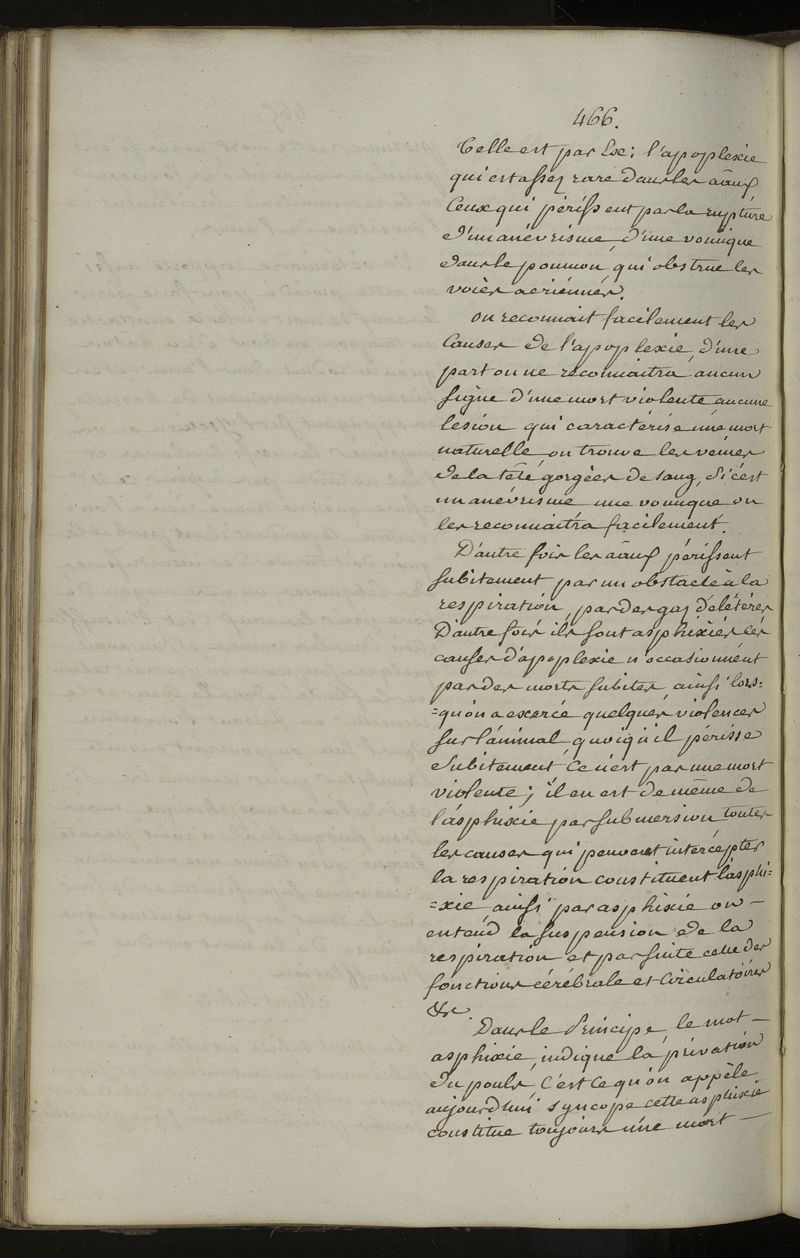 466.
Telle est par Exe: l'apoplexie
qui est assez rare dans les aâux
Ceux qui périssent par la rupture
d'un anévrisme, d'une vomique
dans le poumon, qui obstrue les
voies aeriénnes.
on reconnait facilement les
Causes de l'apoplexie, d'une
part on ne reconnaitra aucun
signe d'une mort violente aucune
lesion qui caractérise une mort
naturelle, on trouve les veines
de la tête gorgées de sang, Si c'est
un anévrisme une vomique on
les reconnaitra facilement.
D'autre fois les aâux périssent
subitement par un obstacle à la
respiration, par des gaz délétères
D'autre fois ils sont asphixiés les
causes d'apoplexie n'occasionnent
pas des morts subites, ainsi lors=
=qu'on a exercé quelques violences
sur l'ánimal quoiqu'il périsse
subitement, Ce n'est pas une mort
violente; il en est de même de
l'asphixie par submersion toutes
les causes qui peuvent intercépter
la respiration constituent l'asphi=
=xie, ainsi par asphixie on —
entend la suspension de la
respiration et par suite celle des
fonctions cérébrale et Circulatóires
&c.
Dans le Principe, le mot —
asphixie, indique la privation
du pouls, C'est Ce qu'on appèle
aujourdhui syncope cette asphixie
constitue toujours une mort —